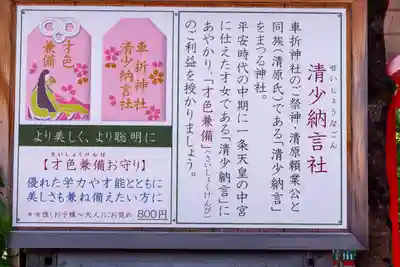 清少納言社
せいしょうなごん
車折神社のご祭神・清原頼業公と
同族(清原氏)である「清少納言」
をまつる神社。
平安時代の中期に一条天皇の中宮
に仕えた才女である「清少納言」に
あやかり、「才色兼備」(さいしょくけんび)
のご利益を授かりましょう。
車折神社
清少納言社
才色
兼備
より美しく、より聡明に
さいしょくけんび
【才色兼備お守り】
優れた学力や才能とともに
美しさも兼ね備えたい方に
*女性(お子様~大人)にお奨め 800円